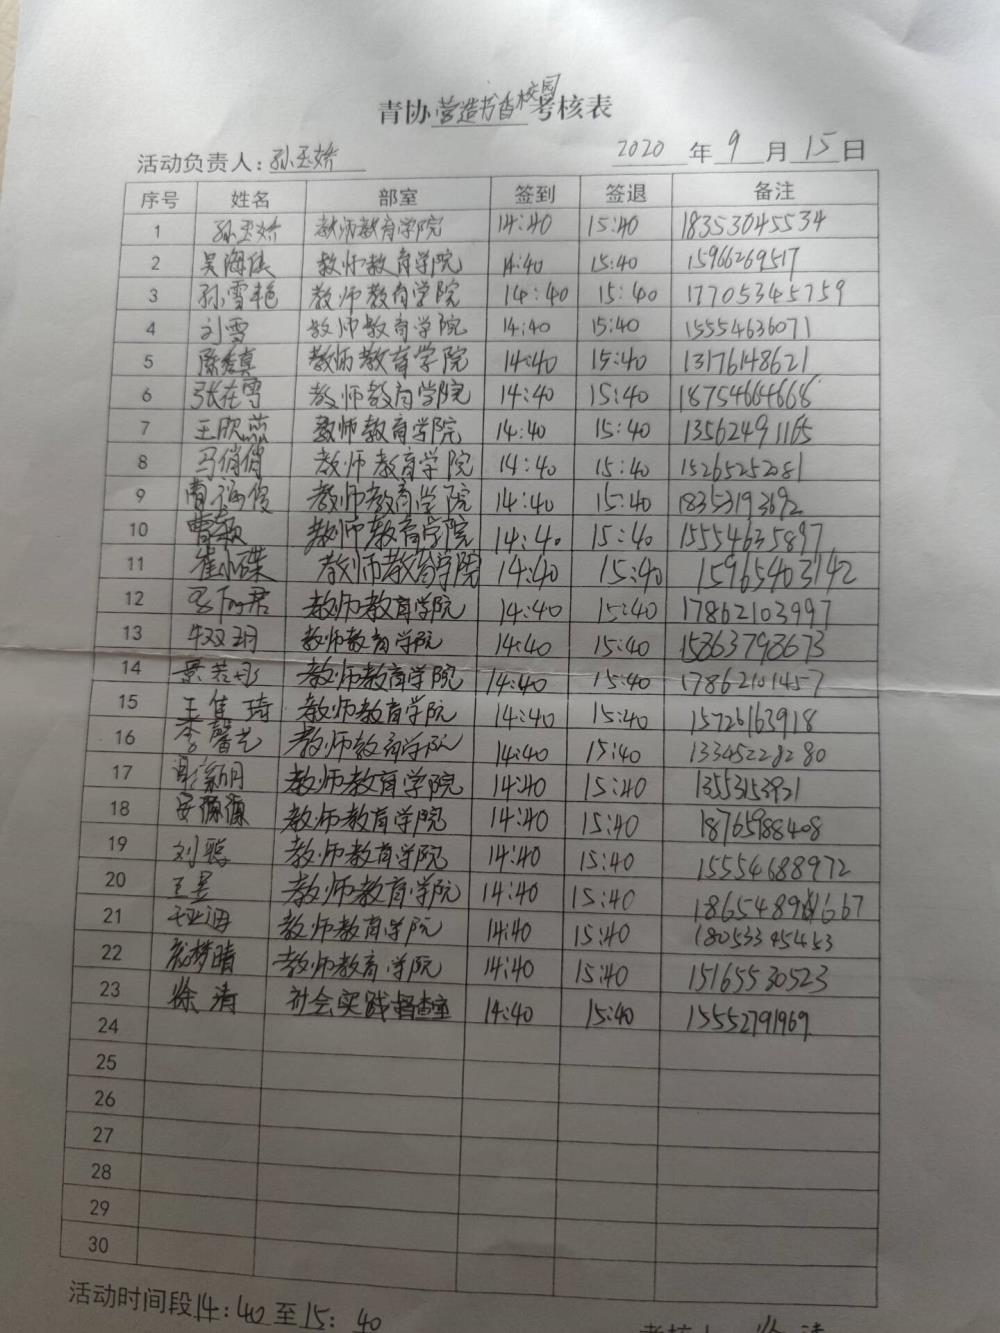 青协营造书香校园考核表
活动负责人：孙丕娇 2020 年 9 月 15 日
序号 姓名 部室 签到 签退 备注
1 孙丕娇 教师教育学院 14:40 15:40 18353045534
2 吴海 教师教育学院 14:40 15:40 15966269517
3 孙雪艳 教师教育学院 14:40 15:40 17705345759
4 刘雪 教师教育学院 14:40 15:40 15554636071
5 真 教师教育学院 14:40 15:40 13176148621
6 张在雪 教师教育学院 14:40 15:40 18754664668
7 王欣蕊 教师教育学院 14:40 15:40 13562491165
8 马俏俏 教师教育学院 14:40 15:40 15265252081
9 曹 俊 教师教育学院 14:40 15:40 18353193692
10 曹颖 教师教育学院 14:40 15:40 15554635897
11 崔小碟 教师教育学院 14:40 15:40 15965403142
12 君 教师教育学院 14:40 15:40 17862103997
13 牛双玥 教师教育学院 14:40 15:40 15863798673
14 景若彤 教师教育学院 14:40 15:40 17862101457
15 王隽琦 教师教育学院 14:40 15:40 15726163918
16 李馨艺 教师教育学院 14:40 15:40 13345228280
17 教师教育学院 14:40 15:40 13553153931
18 安源源 教师教育学院 14:40 15:40 18765988408
19 刘聪 教师教育学院 14:40 15:40 15554688972
20 王昱 教师教育学院 14:40 15:40
21 教师教育学院 14:40 15:40 18053345453
22 梦晴 教师教育学院 14:40 15:40 15165530523
23 徐清 社会实践督查室 14:40 15:40 15552791969
24
25
26
27
28
29
30
活动时间段14：40至15：40
考核人 徐清